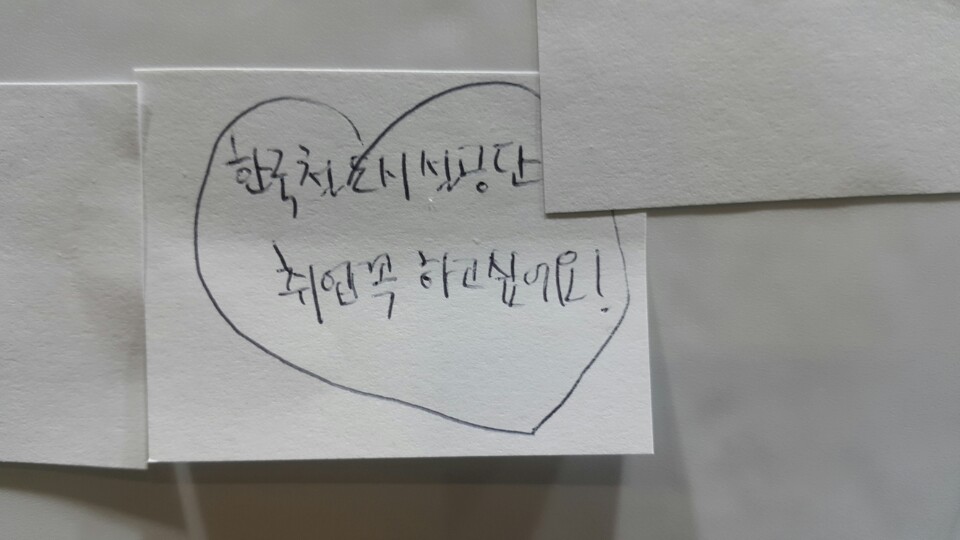 한국철도시설공단
취업꼭 하고싶어요!